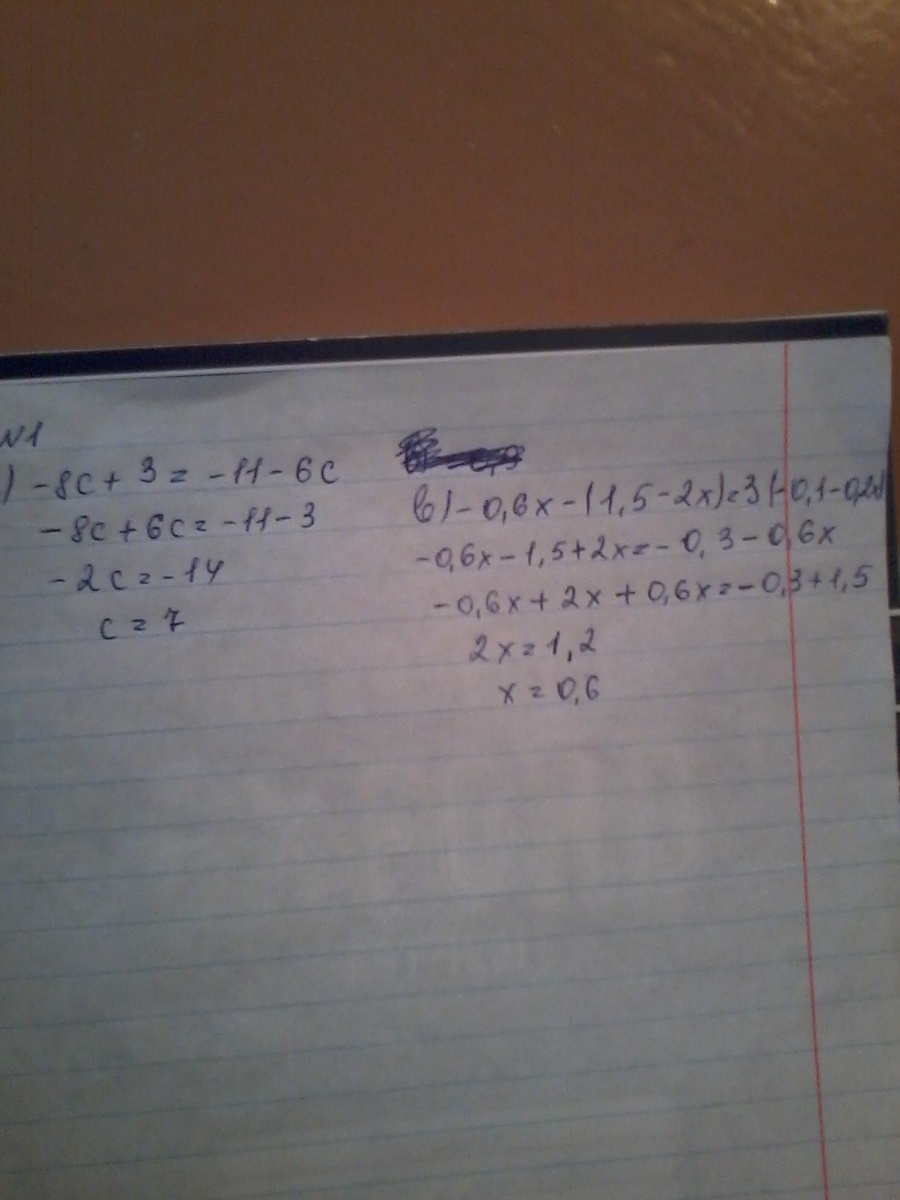 №1
) -8c + 3 = -11 - 6c
-8c + 6c = -11 - 3
-2c = -14
c = 7
в) - 0,6x - (1,5 - 2x) = 3(-0,1-0,2x)
-0,6x - 1,5 + 2x = - 0,3 - 0,6x
-0,6x + 2x + 0,6x = -0,3 + 1,5
2x = 1,2
x = 0,6